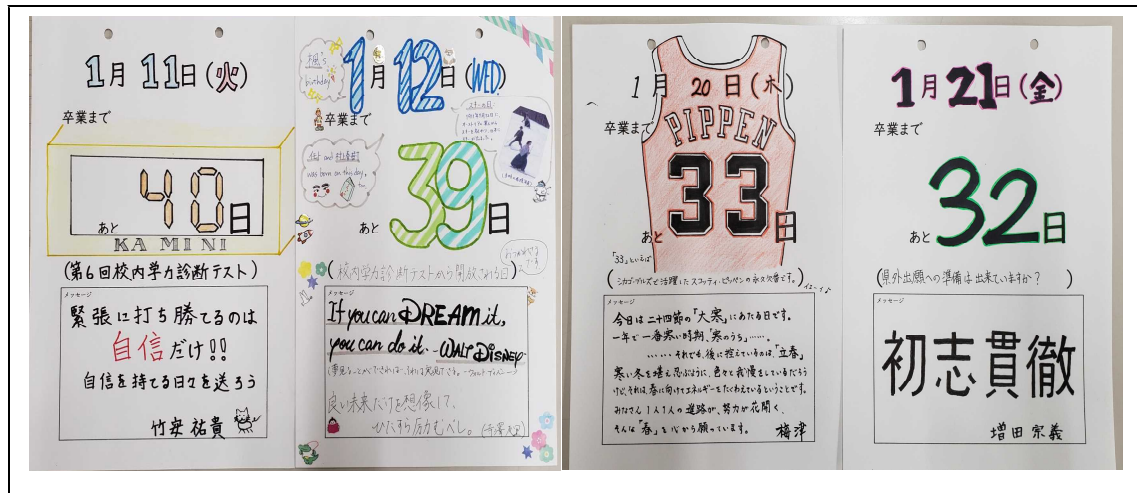 1月 11日(火)
卒業まで
あと 40日
KAMINI
(第6回校内学力診断テスト)
メッセージ
緊張に打ち勝てるのは
自信だけ!!
自信を持てる日々を送ろう
竹安 祐貴
楓's
birthday
1月12日(WED)
卒業まで
スキーの日
was born on this day.
あと 39日
(校内学力診断テストから開放される日)
メッセージ
If you can DREAM it,
you can do it. -WALT DISNEY-
良い未来だけを想像して、
ひたすら励むべし。
1月 20日(木)
卒業まで
PIPPEN
33
あと 日
「33」といえば
(シカゴブルズで活躍したスコッティ・ピッペンの永久欠番です。)
メッセージ
今日は二十四節の「大寒」にあたる日です。
一年で一番寒い時期、「寒のうち」……。
……それでも、後に控えているのは、「立春」
寒い冬を堪え忍ぶように、色々と我慢をしているだろう
けど、それは、春に向けてエネルギーをたくわえているということです。
みなさん1人1人の進路が、努力が花開く、
そんな「春」を心から願っています。 梅津
1月21日(金)
卒業まで
あと 32日
(県外出願への準備は出来ていますか?)
メッセージ
初志貫徹
増田 宗義